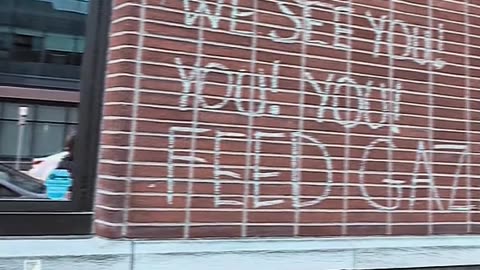 WE SEE YOU!
YOU! YOU!
FEED GAZ